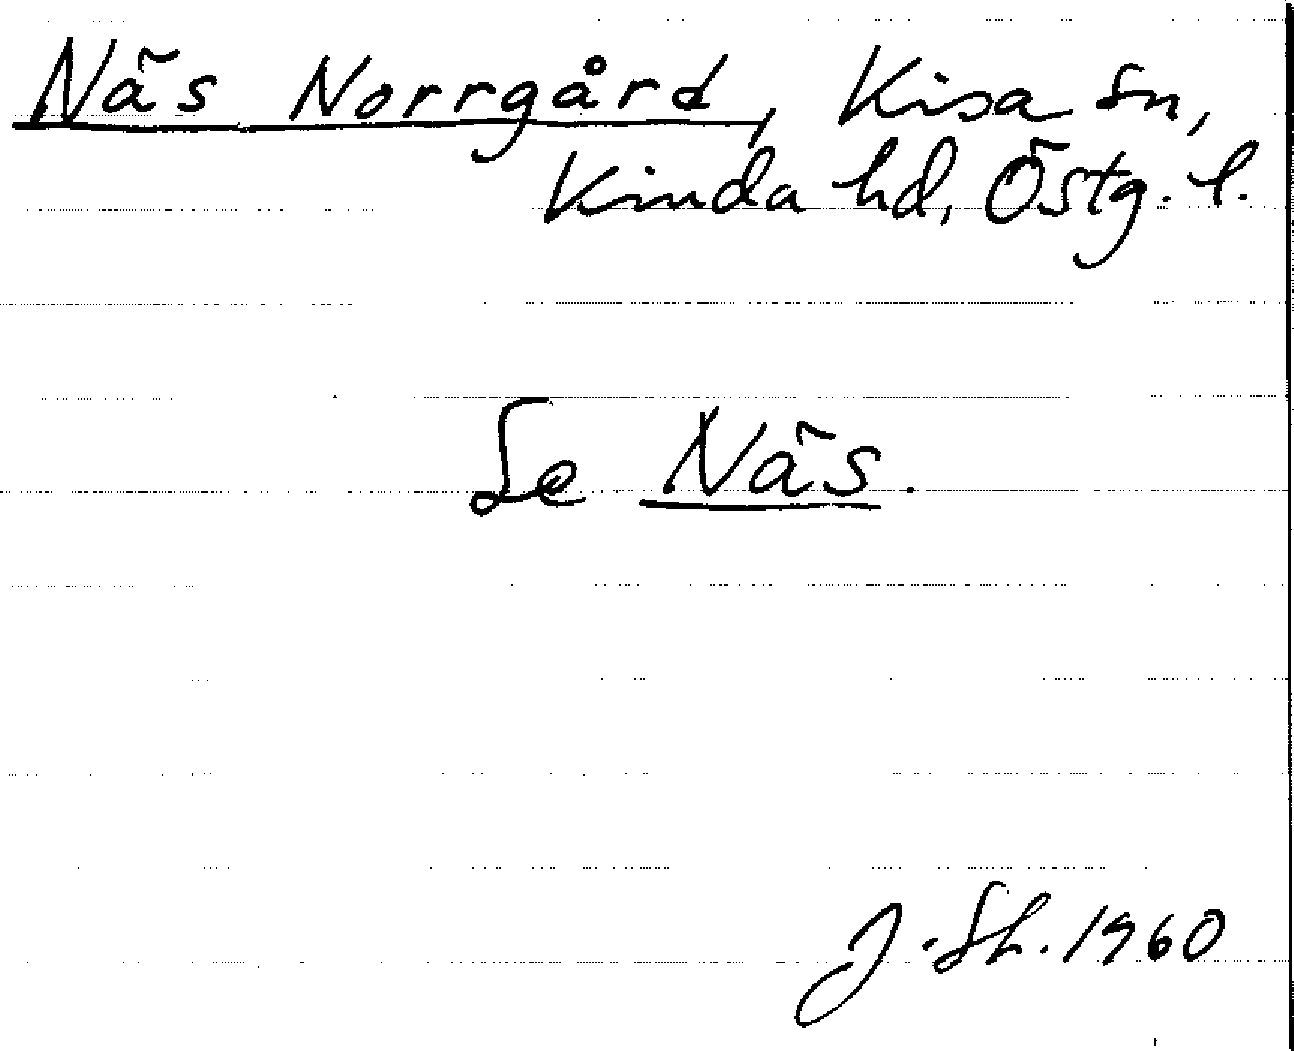 Näs Norrgård, Kisa Sn,
Kinda hd, Östg. l.
Se Näs.
J. Sh. 1960